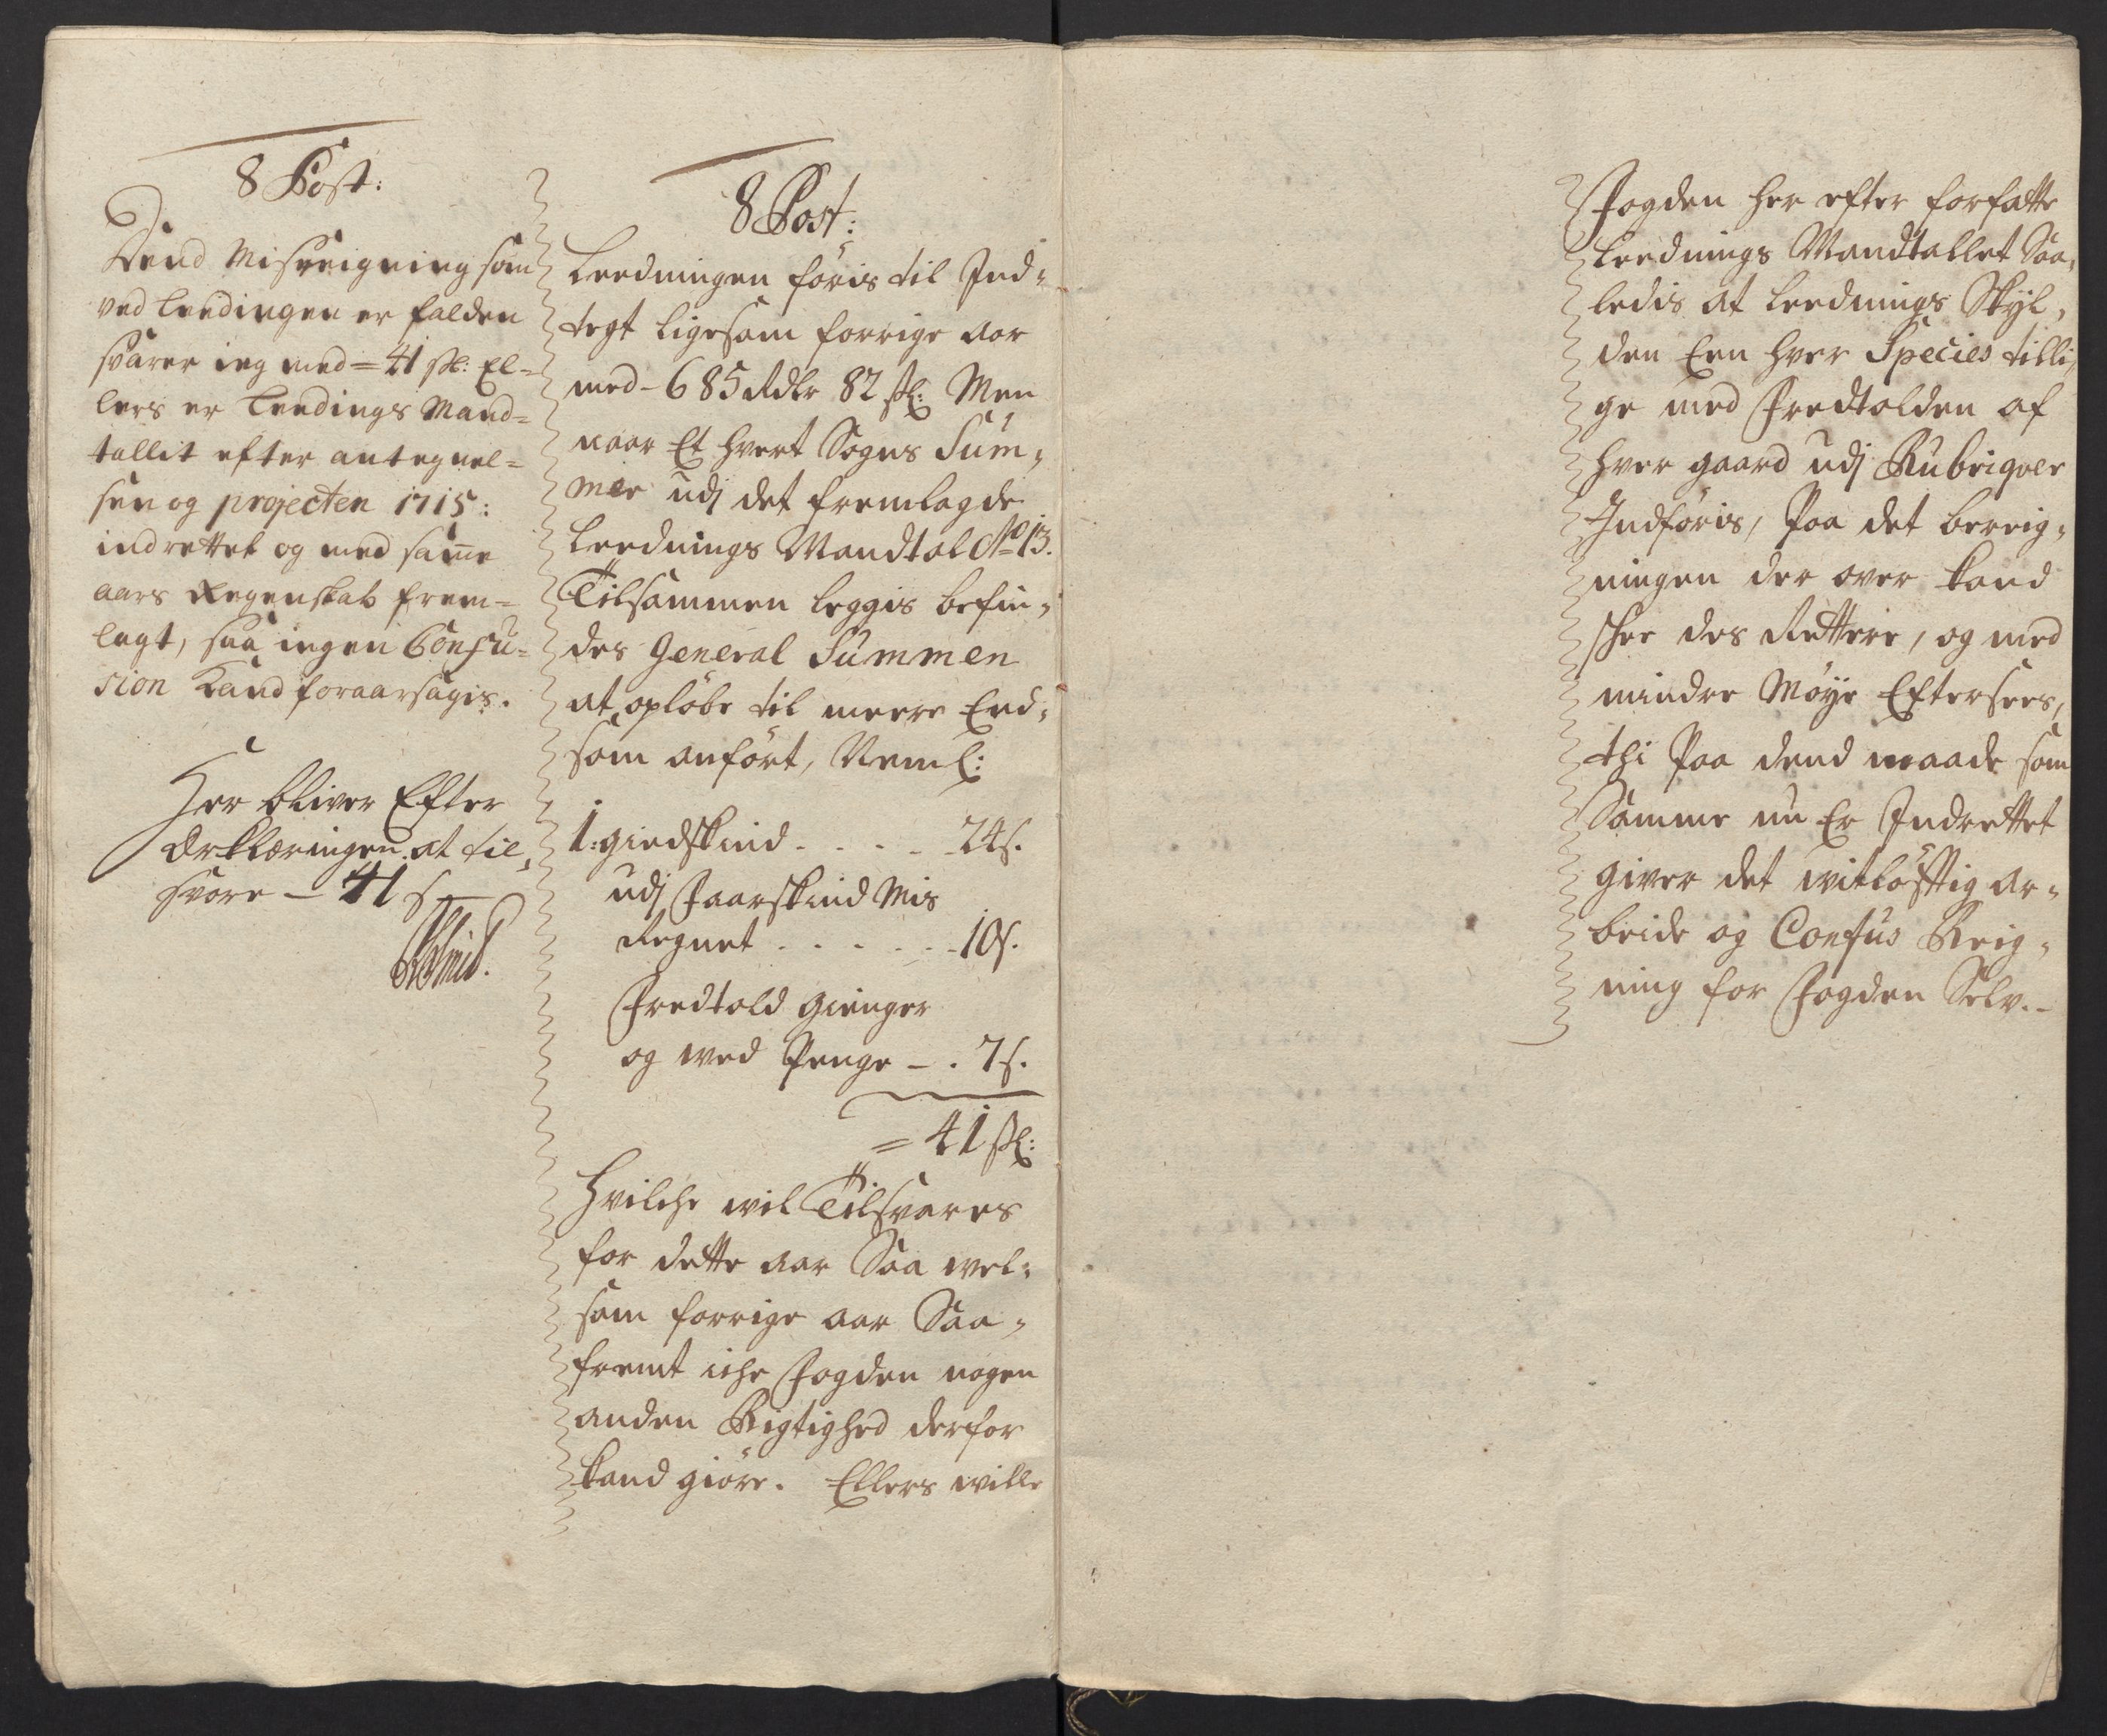 8 Post:
Dend Misreigning som
ved Leedingen er falden
svarer ieg med = 41 sk: El=
lers er Leedings Mand=
tallit efter antegnel=
sen og projecten 1715:
indrettet og med samme
aars Regenskab frem=
lagt, saa ingen Confu=
sion kand foraarsagis.
Her bliver Efter
Erklæringen at til,
svare – 41 s
8 Post:
Leedningen føris til Ind=
tegt ligesom forrige aar
med – 685 Rdlr 82 sk: Men
naar Et hvert Sogns Sum,
mer udj det fremlagde
Leednings Mandtal No 13.
Tilsammen leggis befin,
des General Summen
at opløbe til meere End,
som anført, Neml:
1: giedskind . . . . 24 s.
udj Faarskind Mis
Regnet . . . . . . 10 s.
Fredtold Gienger
og wed Penge – . 7 s.
= 41 sk:
Hvilche wil Tilsvares
for dette aar Saa wel,
som forrige aar Saa,
fremt iche Fogden nogen
anden Rigtighed derfor
kand giøre. Ellers wille
Fogden her efter forfatte
Leednings Mandtallet Saa,
ledis at Leednings Skyl,
den Een hver Species tilli,
ge med Fredtolden af
hver gaard udj Rubriqver
Indføris, Paa det bereig,
ningen der over kand
skee des Rettere, og med
mindre Møye Eftersees,
thi Paa dend maade som
Samme nu Er Indrettet
giver det witløfftig ar,
beide og Confus Reig,
ning for Fogden Selv. –